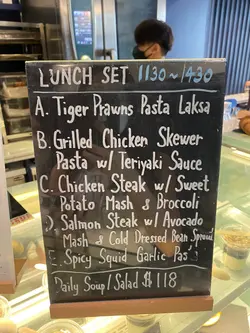 LUNCH SET 1130~1430
A. Tiger Prawns Pasta Laksa
B. Grilled Chicken Skewer
Pasta w/ Teriyaki Sauce
C. Chicken Steak w/ Sweet
Potato Mash & Broccoli
D. Salmon Steak w/ Avocado
Mash & Cold Dressed Bean Sprout
E. Spicy Squid Garlic Pasta
Daily Soup/Salad $118